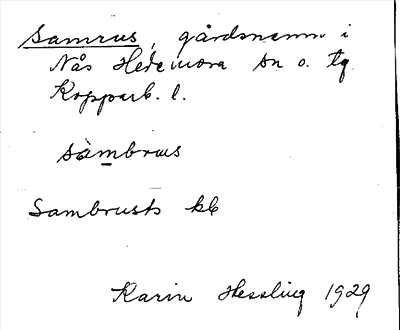 Samrus, gårdsnamn i
Nås Hedemora sn o. tg
Kopparb. l.
sàmbrus
Sambrusts kb
Karin Hessling 1929